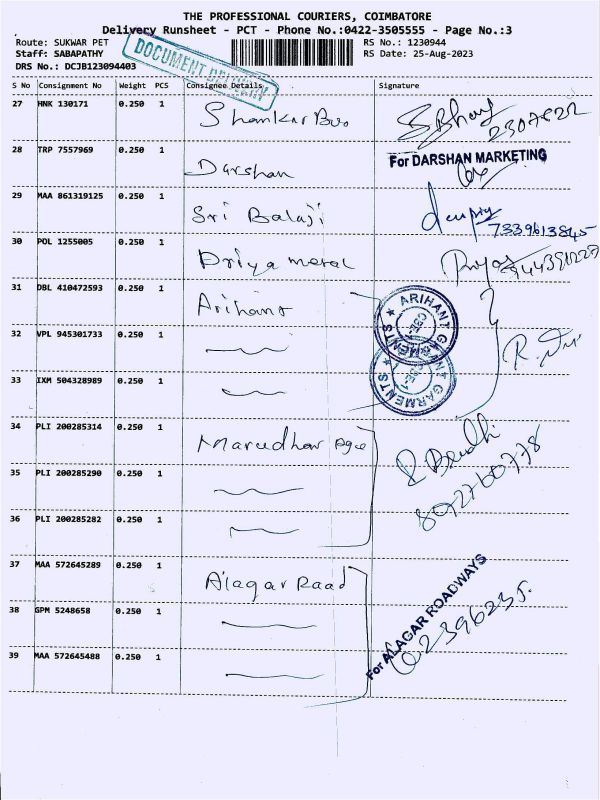 THE PROFESSIONAL COURIERS, COIMBATORE
Delivery Runsheet - PCT - Phone No.:0422-3505555 - Page No.:3
Route: SUKWAR PET RS No.: 1230944
Staff: SABAPATHY RS Date: 25-Aug-2023
DRS No.: DCJB123094403
DOCUMENT DELIVERY
S No Consignment No Weight PCS Consignee Details Signature
27 HNK 130171 0.250 1 Shankar Bro
28 TRP 7557969 0.250 1 Darshan For DARSHAN MARKETING
29 MAA 861319125 0.250 1 Sri Balaji 7339613845
30 POL 1255005 0.250 1 Priya metal
31 DBL 410472593 0.250 1 Arihant ARIHANT GARMENTS CBE-1
32 VPL 945301733 0.250 1
33 IXM 504328989 0.250 1 ARIHANT GARMENTS CBE-1
34 PLI 200285314 0.250 1 Marudhar
35 PLI 200285290 0.250 1
36 PLI 200285282 0.250 1
37 MAA 572645289 0.250 1 Alagar Road
38 GPM 5248658 0.250 1 For ALAGAR ROADWAYS
39 MAA 572645488 0.250 1